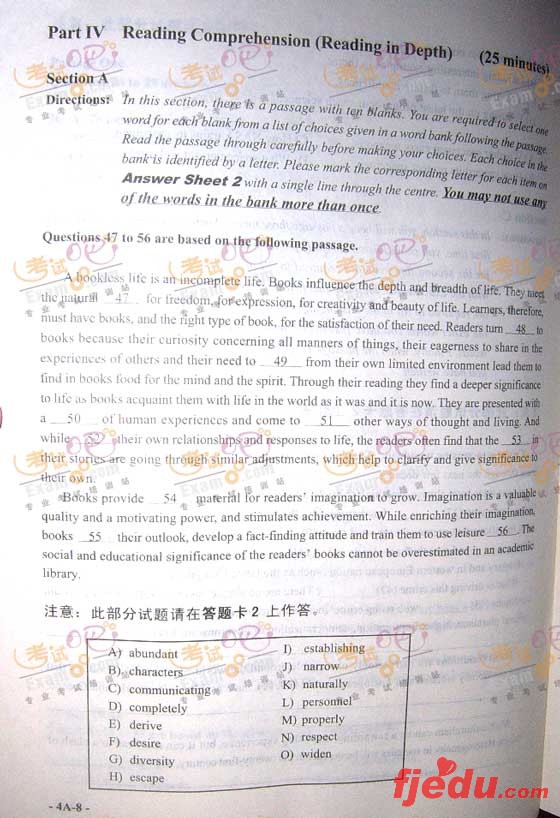 Part IV Reading Comprehension (Reading in Depth) (25 minutes)
Section A
Directions: In this section, there is a passage with ten blanks. You are required to select one
word for each blank from a list of choices given in a word bank following the passage.
Read the passage through carefully before making your choices. Each choice in the
bank is identified by a letter. Please mark the corresponding letter for each item on
Answer Sheet 2 with a single line through the centre. You may not use any
of the words in the bank more than once.
Questions 47 to 56 are based on the following passage.
A bookless life is an incomplete life. Books influence the depth and breadth of life. They meet
the natural 47 for freedom, for expression, for creativity and beauty of life. Learners, therefore,
must have books, and the right type of book, for the satisfaction of their need. Readers turn 48 to
books because their curiosity concerning all manners of things, their eagerness to share in the
experiences of others and their need to 49 from their own limited environment lead them to
find in books food for the mind and the spirit. Through their reading they find a deeper significance
to life as books acquaint them with life in the world as it was and it is now. They are presented with
a 50 of human experiences and come to 51 other ways of thought and living. And
while 52 their own relationships and responses to life, the readers often find that the 53 in
their stories are going through similar adjustments, which help to clarify and give significance to
their own.
Books provide 54 material for readers' imagination to grow. Imagination is a valuable
quality and a motivating power, and stimulates achievement. While enriching their imagination,
books 55 their outlook, develop a fact-finding attitude and train them to use leisure 56. The
social and educational significance of the readers' books cannot be overestimated in an academic
library.
注意：此部分试题请在答题卡2上作答。
A) abundant
B) characters
C) communicating
D) completely
E) derive
F) desire
G) diversity
H) escape
I) establishing
J) narrow
K) naturally
L) personnel
M) properly
N) respect
O) widen
- 4A-8 -
fjedu.com